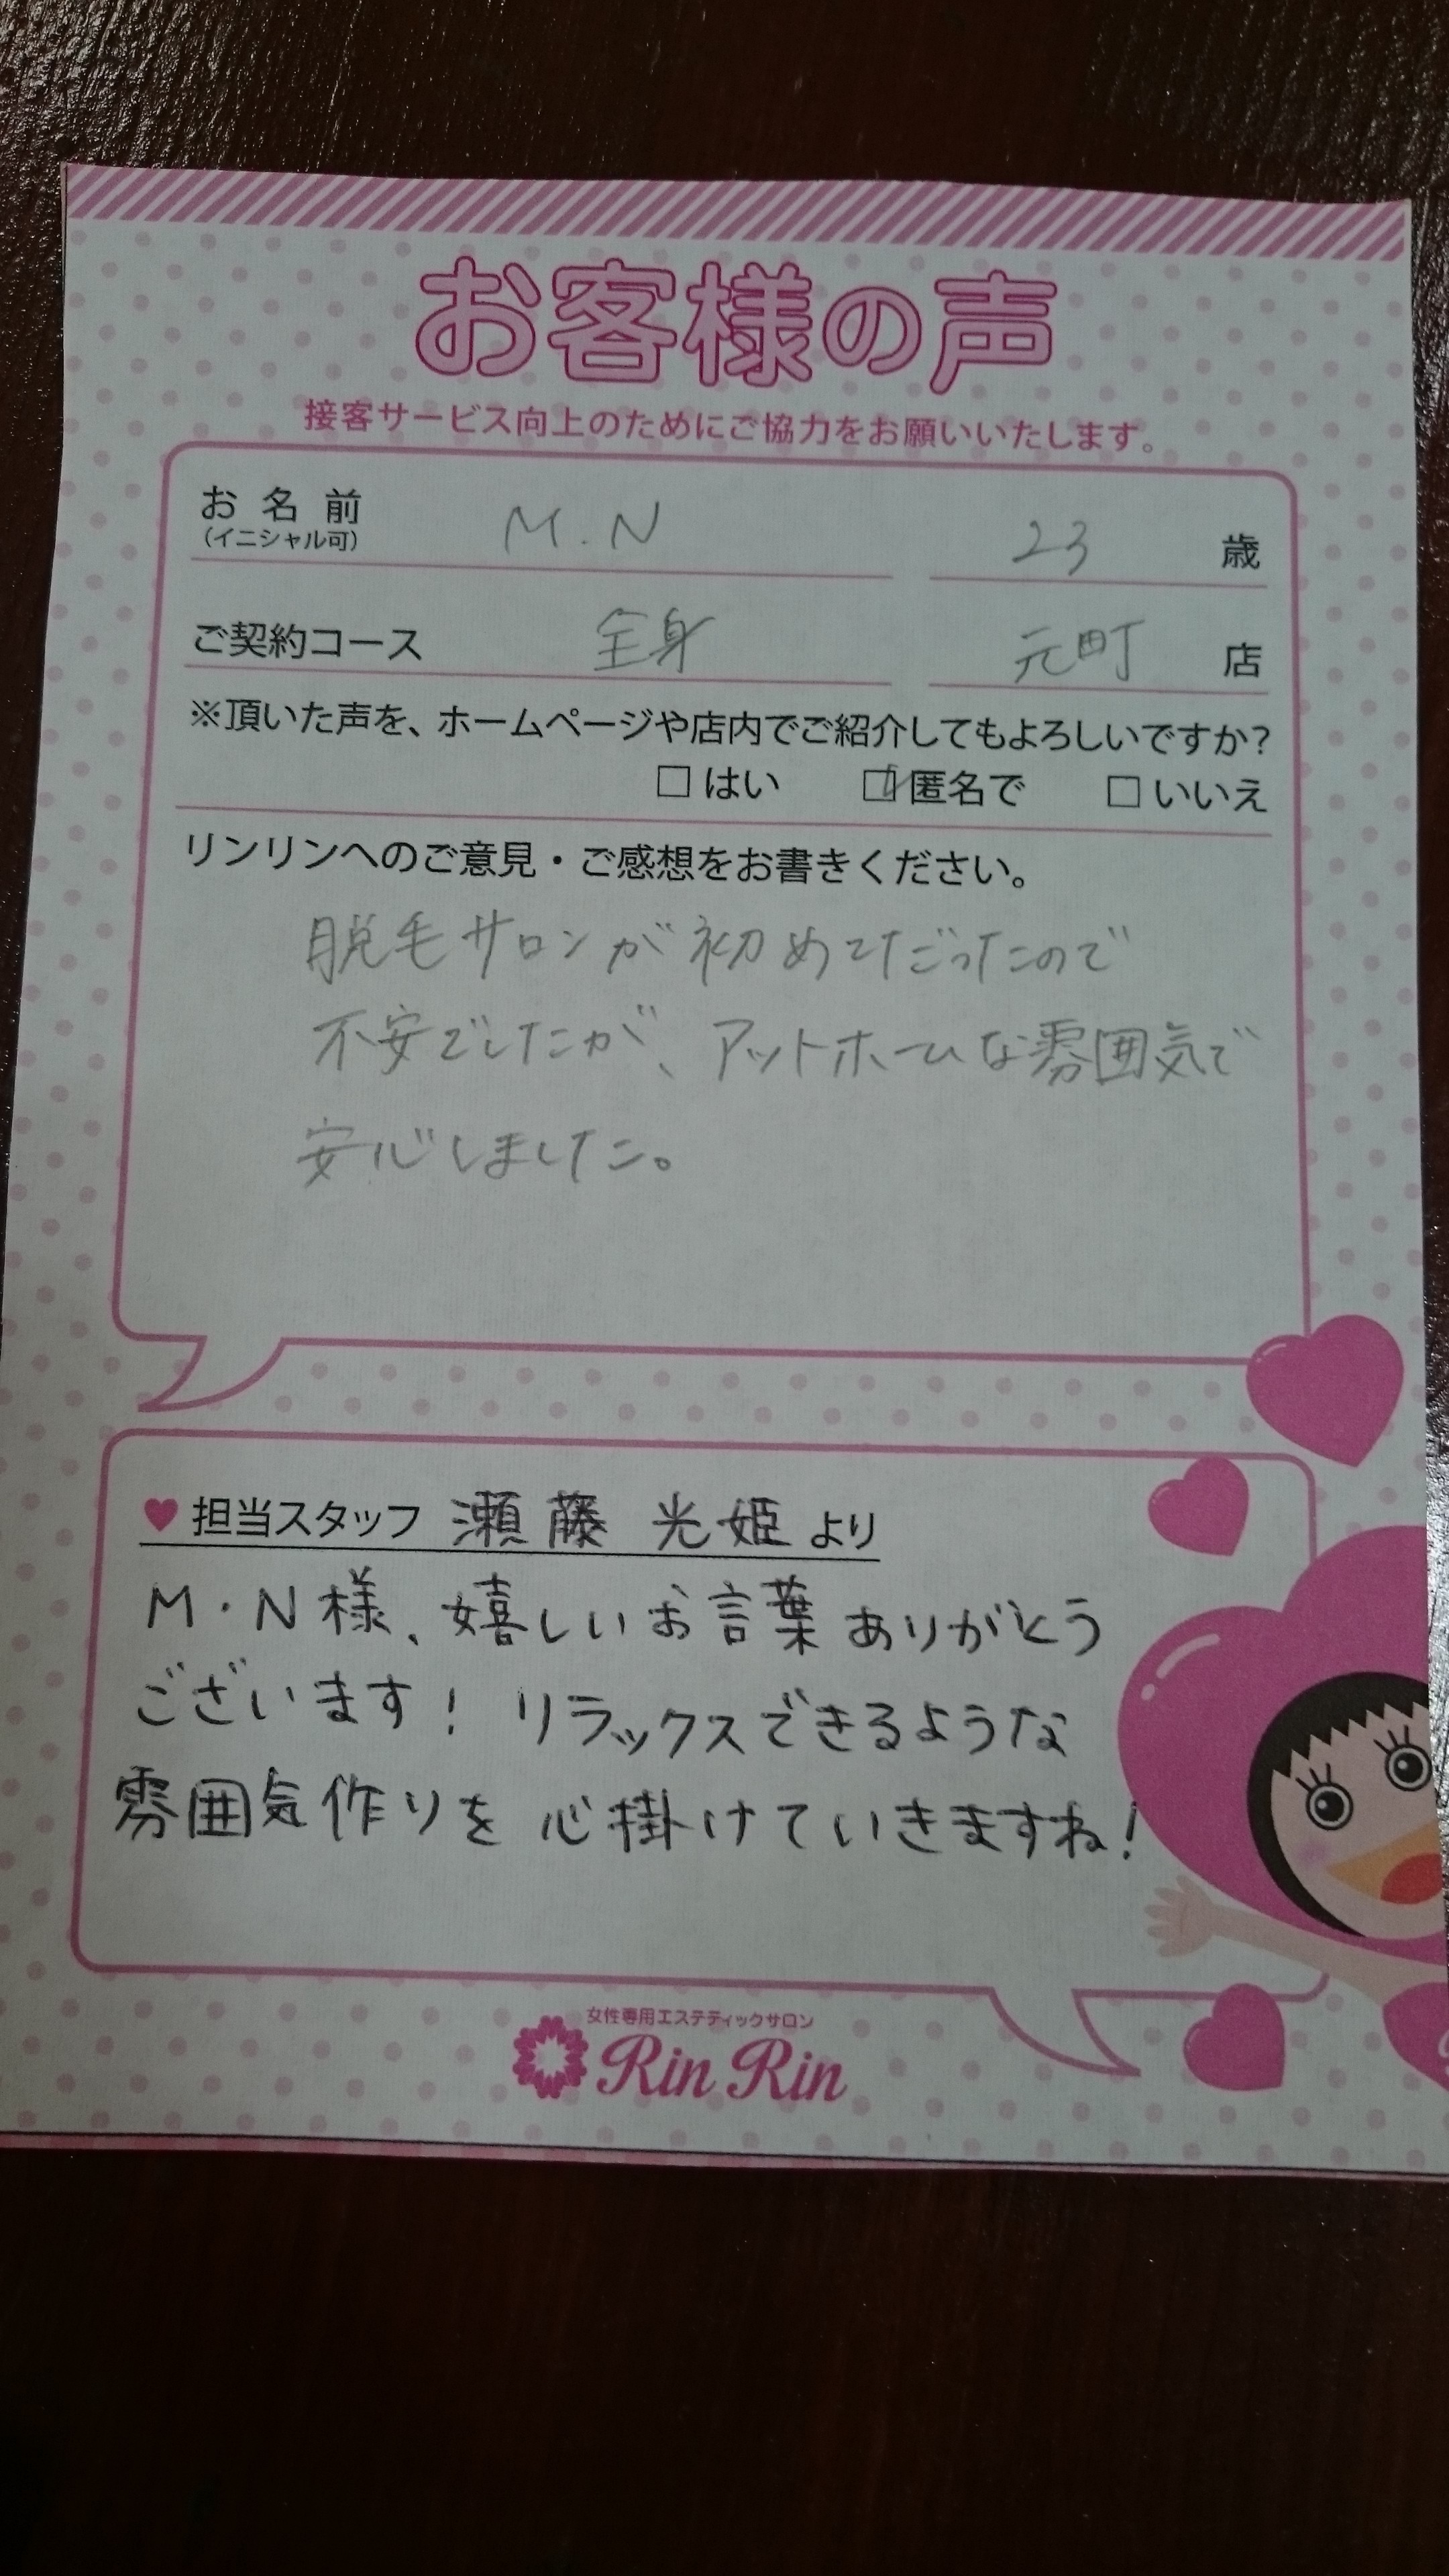 お客様の声
接客サービス向上のためにご協力をお願いいたします。
お名前 M.N 23 歳
(イニシャル可)
ご契約コース 全身 元町 店
※頂いた声を、ホームページや店内でご紹介してもよろしいですか?
□はい ☑匿名で □いいえ
リンリンへのご意見・ご感想をお書きください。
脱毛サロンが初めてだったので
不安でしたが、アットホームな雰囲気で
安心しました。
♥担当スタッフ 瀬藤 光姫 より
M・N様、嬉しいお言葉ありがとう
ございます! リラックスできるような
雰囲気作りを心掛けていきますね!
女性専用エステティックサロン
Rin Rin